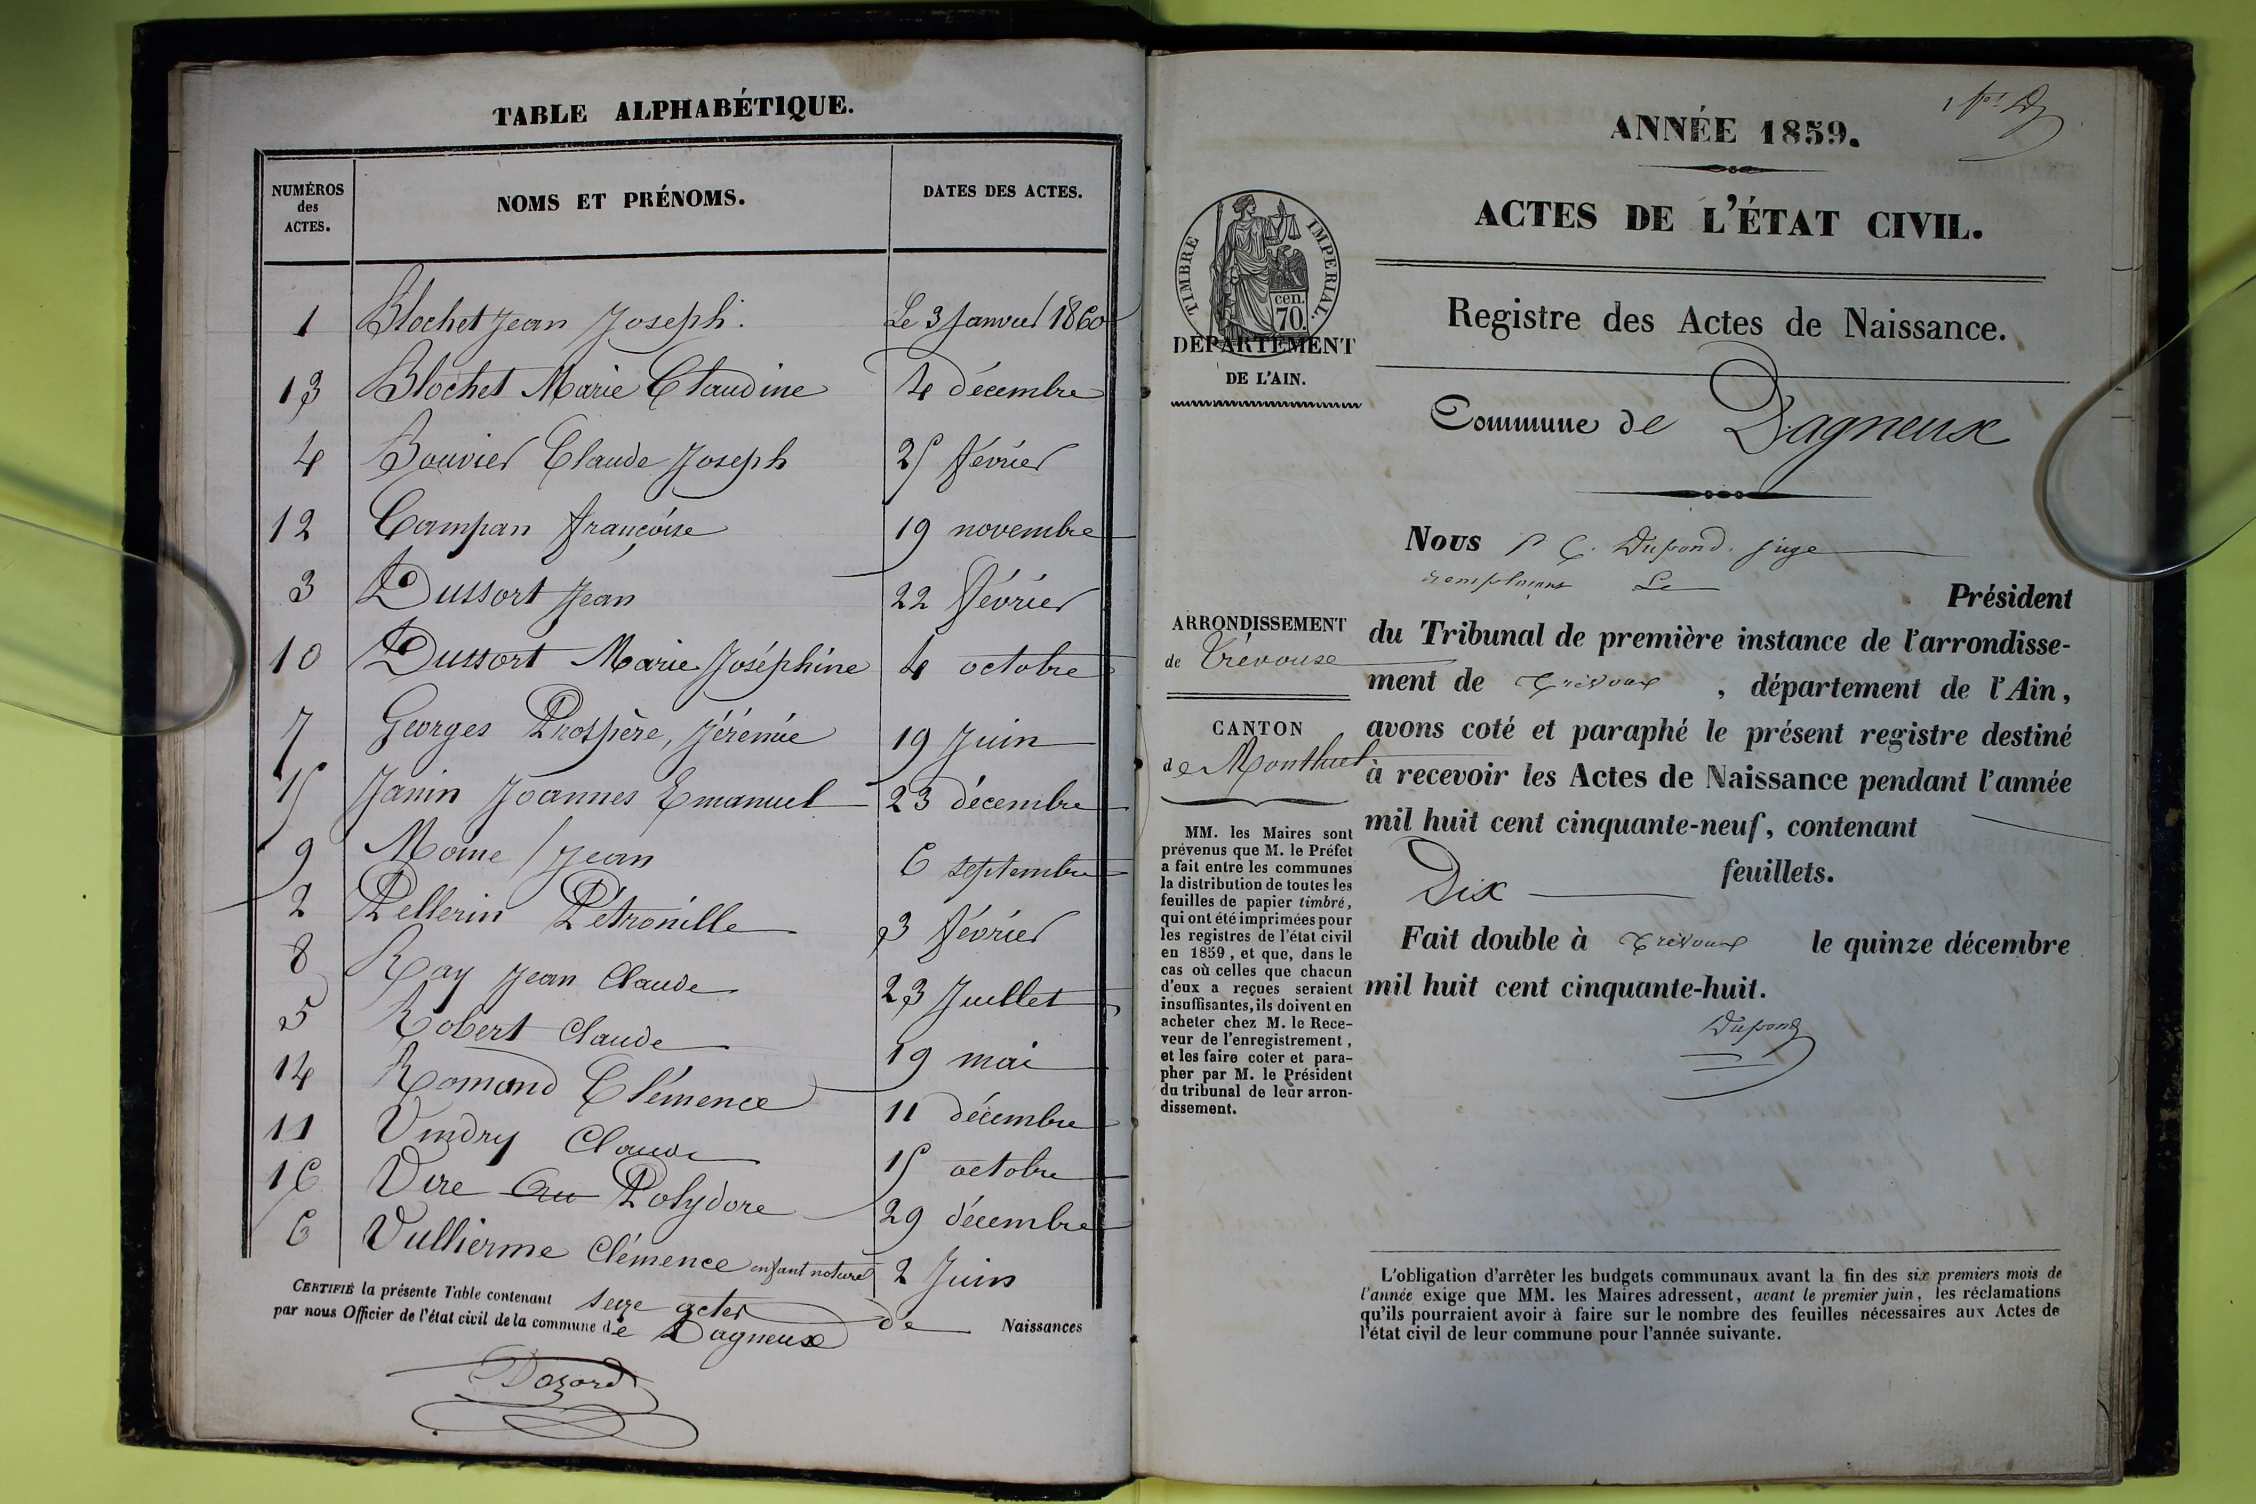 TABLE ALPHABÉTIQUE.
NUMÉROS des ACTES.
NOMS ET PRÉNOMS.
DATES DES ACTES.
1 Blochet Jean Joseph. Le 3 Janvier 1860
13 Blochet Marie Claudine 4 décembre
4 Bouvier Claude Joseph 25 février
12 Campan françoise 19 novembre
3 Dussort Jean 22 février
10 Dussort Marie Joséphine 4 octobre
7 Georges Prospère, Jérémie 19 Juin
15 Janin Joannes Emanuel 23 décembre
9 Moine Jean 6 septembre
2 Pellerin Pétronille 3 février
8 Ray Jean Claude 23 Juillet
5 Robert Claude 19 mai
14 Romand Clémence 11 décembre
11 Vindry Claude 15 octobre
16 Vire Polydore 29 décembre
6 Vullierme Clémence enfant naturel 2 Juin
CERTIFIÉ la présente Table contenant seize actes de Naissances
par nous Officier de l'état civil de la commune de Dagneux
Dozard
ANNÉE 1859.
ACTES DE L'ÉTAT CIVIL.
TIMBRE IMPERIAL.
cen.
70.
DÉPARTEMENT
DE L'AIN.
Registre des Actes de Naissance.
Commune de Dagneux
ARRONDISSEMENT
de Trévoux
CANTON
de Montluel
MM. les Maires sont
prévenus que M. le Préfet
a fait entre les communes
la distribution de toutes les
feuilles de papier timbré,
qui ont été imprimées pour
les registres de l'état civil
en 1859, et que, dans le
cas où celles que chacun
d'eux a reçues seraient
insuffisantes, ils doivent en
acheter chez M. le Rece-
veur de l'enregistrement,
et les faire coter et para-
pher par M. le Président
du tribunal de leur arron-
dissement.
Nous Dupond. juge
remplaçant Le Président
du Tribunal de première instance de l'arrondisse-
ment de Trévoux, département de l'Ain,
avons coté et paraphé le présent registre destiné
à recevoir les Actes de Naissance pendant l'année
mil huit cent cinquante-neuf, contenant
Dix feuillets.
Fait double à Trévoux le quinze décembre
mil huit cent cinquante-huit.
Dupond
L'obligation d'arrêter les budgets communaux avant la fin des six premiers mois de
l'année exige que MM. les Maires adressent, avant le premier juin, les réclamations
qu'ils pourraient avoir à faire sur le nombre des feuilles nécessaires aux Actes de
l'état civil de leur commune pour l'année suivante.